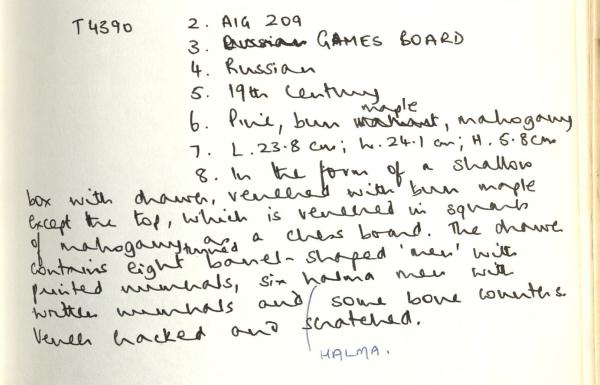 T4390
2. AIG 209
3. Russian GAMES BOARD
4. Russian
5. 19th Century
maple
6. Pine, burr, mahogany
7. L. 23.8 cm; W. 24.1 cm; H. 5.8cm
8. In the form of a shallow
box with drawer, veneered with burr maple
except the top, which is veneered in squares
of mahogany as a chess board. The drawer
turned
contains eight barrel-shaped 'men' with
printed numerals, six halma men with
written numerals and some bone counters.
Veneer cracked and scratched.
HALMA.